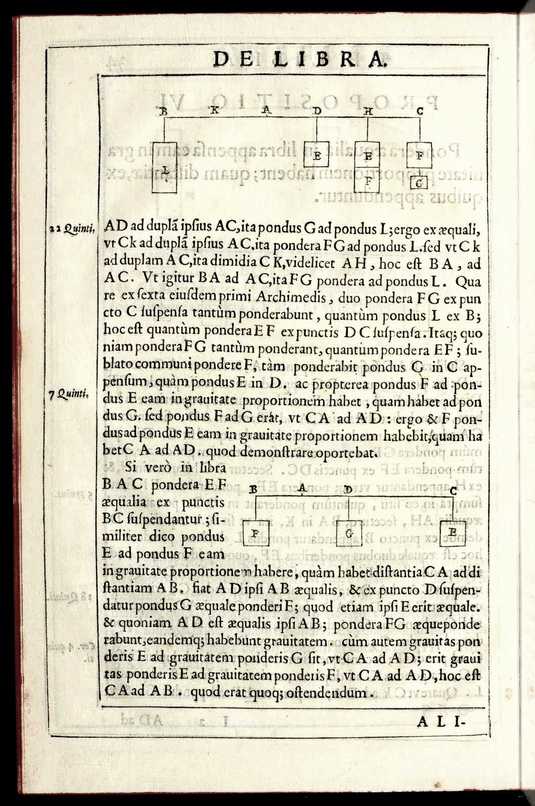 DE LIBRA.
B K A D H C
L E E F
F G
22 Quinti. AD ad duplã ipsius AC, ita pondus G ad pondus L; ergo ex æquali,
vt Ck ad duplã ipsius AC, ita pondera FG ad pondus L. sed vt Ck
ad duplam AC, ita dimidia CK, videlicet AH, hoc est BA, ad
AC. Vt igitur BA ad AC, ita FG pondera ad pondus L. Qua
re ex sexta eiusdem primi Archimedis, duo pondera FG ex pun
cto C suspensa tantùm ponderabunt, quantùm pondus L ex B;
hoc est quantùm pondera EF ex punctis DC suspensa. Itaq; quo
niam pondera FG tantùm ponderant, quantum pondera EF; su-
blato communi pondere F, tàm ponderabit pondus G in C ap-
pensum, quàm pondus E in D. ac propterea pondus F ad pon-
7 Quinti. dus E eam in grauitate proportionem habet, quam habet ad pon
dus G. sed pondus F ad G erat, vt CA ad AD: ergo & F pon-
dus ad pondus E eam in grauitate proportionem habebit, quam ha
bet C A ad AD. quod demonstrare oportebat.
Si verò in libra
BAC pondera EF
æqualia ex punctis
BC suspendantur; si-
militer dico pondus
E ad pondus F eam
B A D C
F G E
in grauitate proportionem habere, quàm habet distantia CA ad di
stantiam AB. fiat AD ipsi AB æqualis, & ex puncto D suspen-
datur pondus G æquale ponderi F; quod etiam ipsi E erit æquale.
& quoniam AD est æqualis ipsi AB; pondera FG æqueponde
rabunt, eandemq; habebunt grauitatem. cùm autem grauitas pon
deris E ad grauitatem ponderis G sit, vt CA ad AD; erit graui
tas ponderis E ad grauitatem ponderis F, vt CA ad AD, hoc est
CA ad AB. quod erat quoq; ostendendum.
ALI-